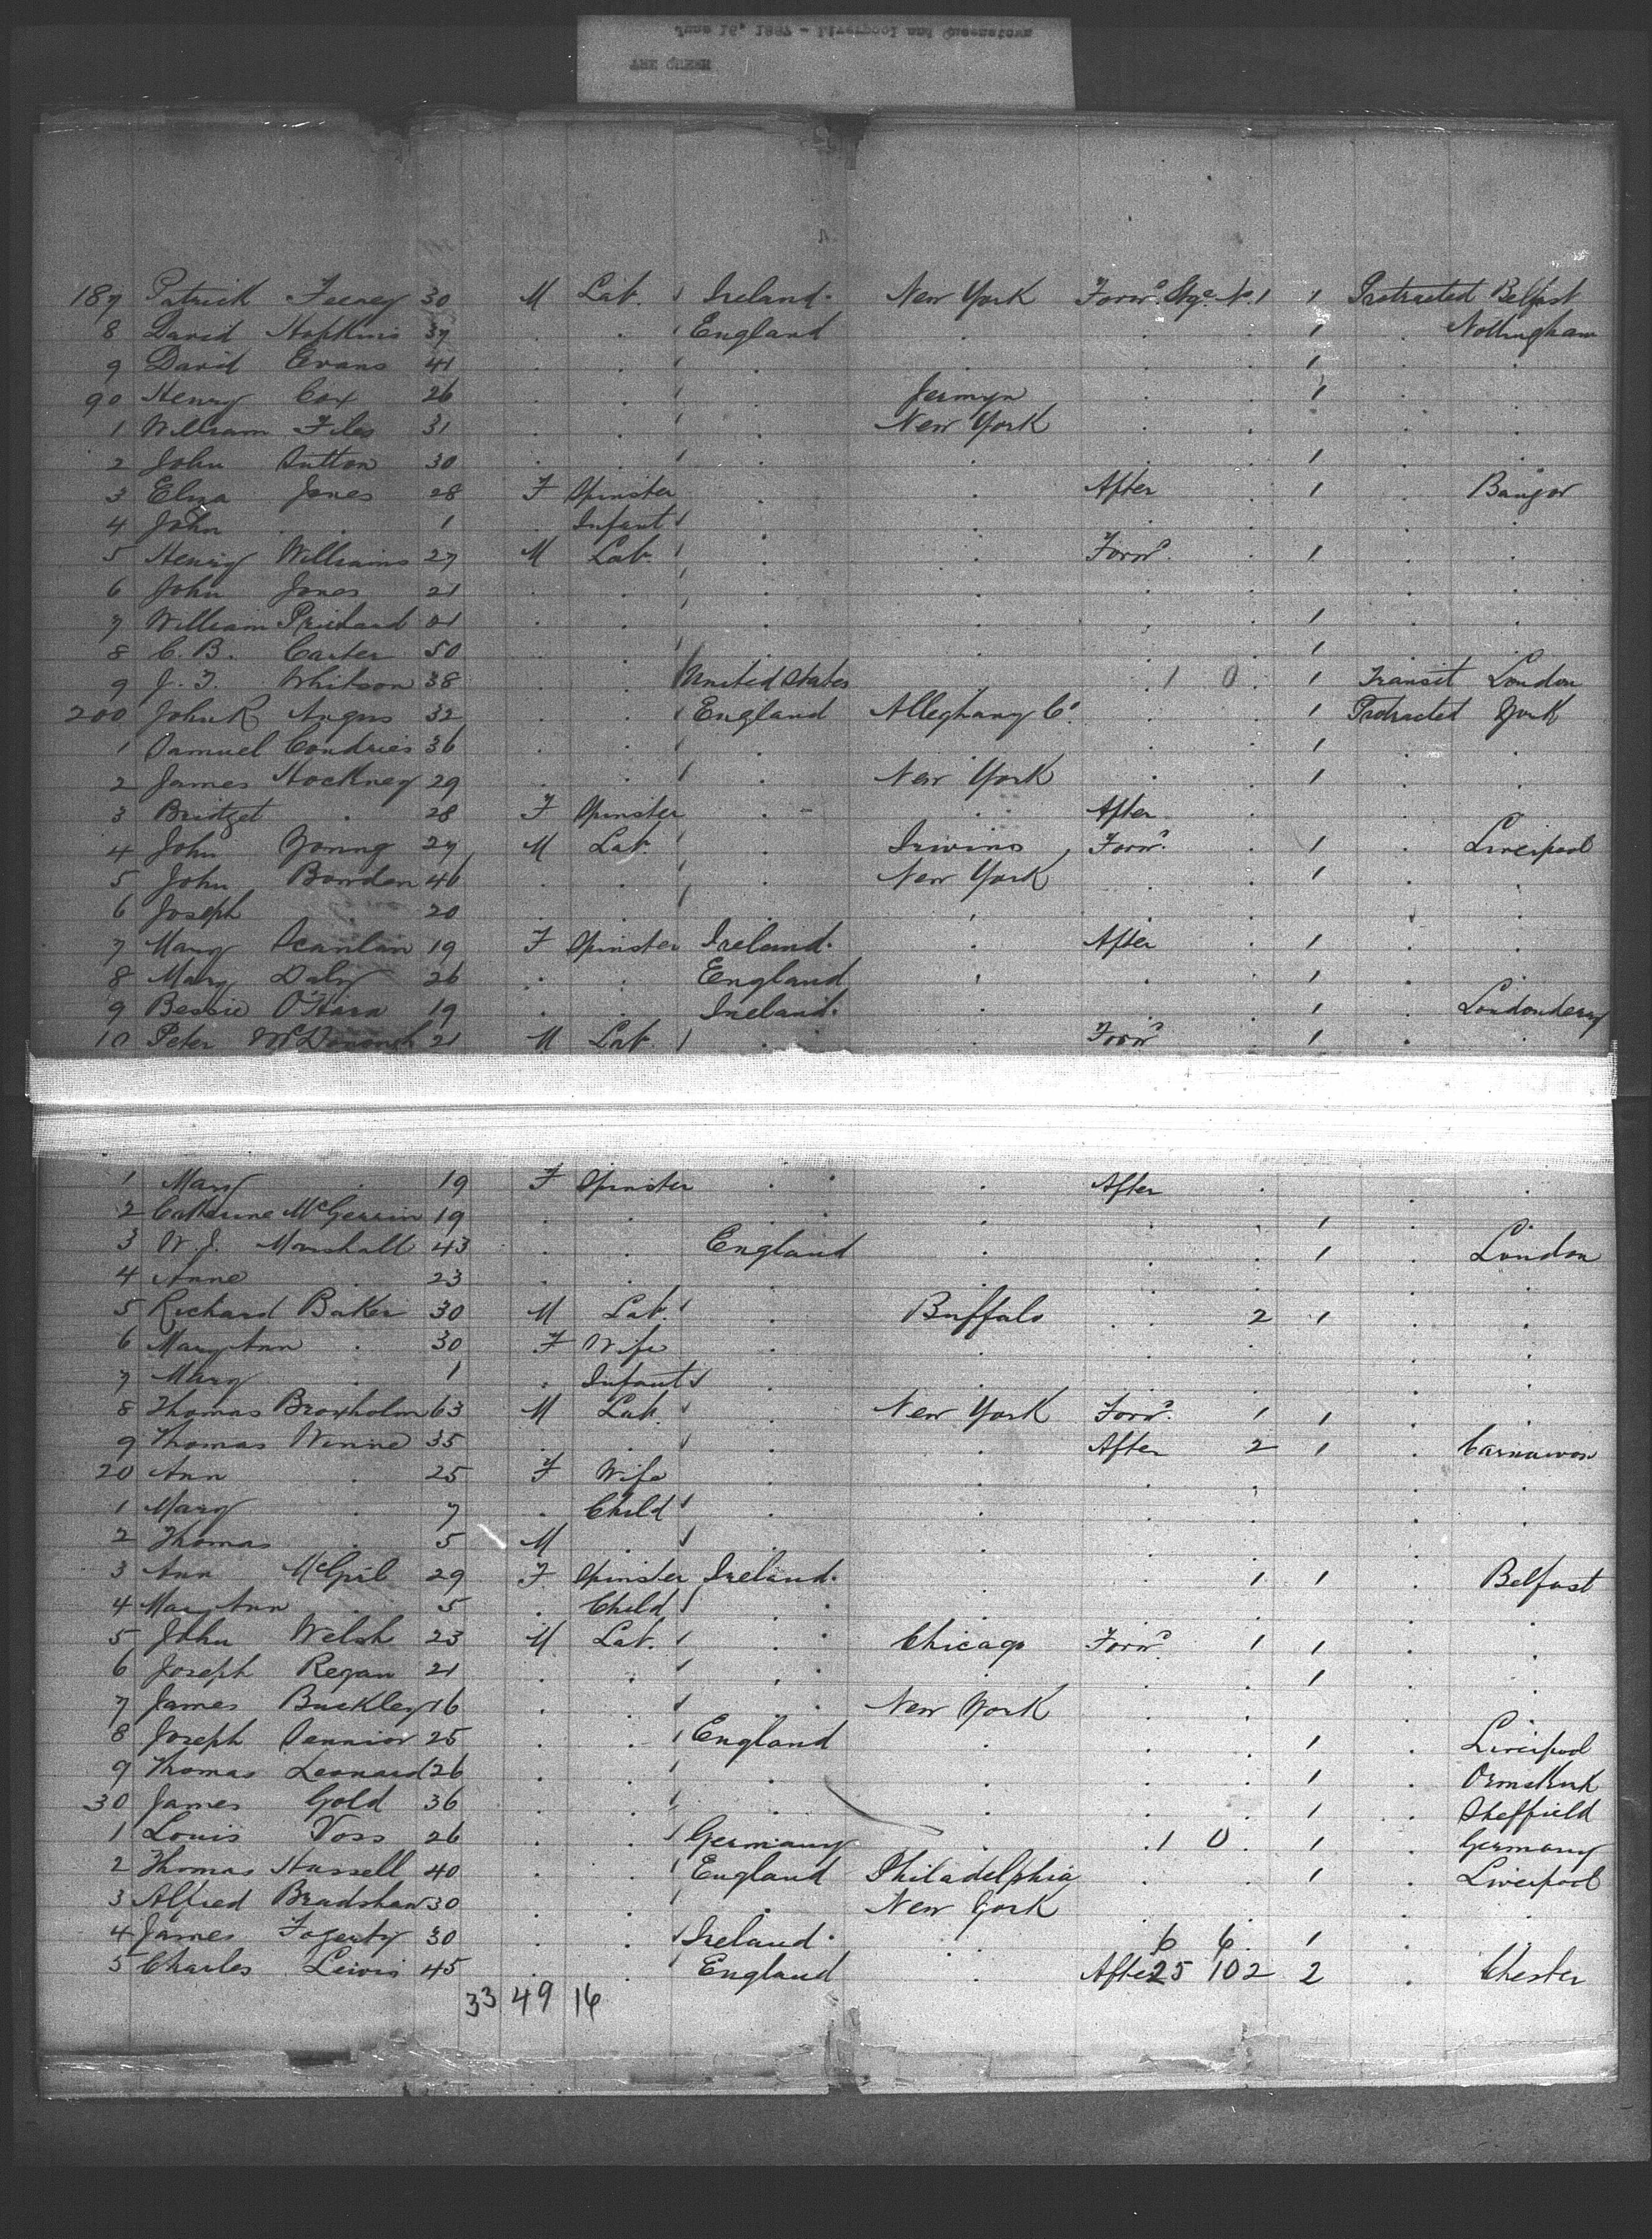 June 16, 1887 - Liverpool and Queenstown
THE QUEEN
187 Patrick Feeney 30 M Lab. Ireland. New York Forwd. Stge. No. 1 1 Protracted Belfast
8 David Hopkins 37 . . England . . . 1 . Nottingham
9 David Evans 41 . . . . . . 1 . .
90 Henry Cox 26 . . . Jermyn . . 1 . .
1 William Files 31 . . . New York . . . . .
2 John Sutton 30 . . . . . . 1 . .
3 Eliza Jones 28 F Spinster . . After . 1 . Bangor
4 John . . 1 . Infant . . . . . .
5 Henry Williams 27 M Lab. . . Forwd. . 1 . .
6 John Jones 21 . . . . . . . .
7 William Prichard 21 . . . . . . 1 . .
8 C. B. Carter 50 . . . . . . 1 . .
9 J. T. Whitson 38 . . United States . . 1 0 . 1 Transit London
200 John R Angus 32 . . England Alleghany Co. . . 1 Protracted York
1 Samuel Condries 36 . . . . . . 1 . .
2 James Hockney 29 . . . New York . . 1 . .
3 Bridget . 28 F Spinster . . After . . .
4 John Young 27 M Lab. . Irwins Forwd. . 1 . Liverpool
5 John Bowden 46 . . . New York . . 1 . .
6 Joseph 20 . . . . . . . .
7 Mary Scanlan 19 F Spinster Ireland. . After . 1 . .
8 Mary Daly 26 . . England . . . 1 . .
9 Bessie O'Hara 19 . . Ireland. . . . 1 . Londonderry
10 Peter McDonough 21 M Lab. . . Forwd. . 1 . .
1 Mary . 19 F Spinster . . After . . .
2 Catherine McGerrin 19 . . . . . . 1 . .
3 W. J. Marshall 43 . . England . . . 1 . London
4 Anne . 23 . . . . . . . .
5 Richard Baker 30 M Lab. . Buffalo . 2 1 . .
6 Mary Ann . 30 F Wife . . . . . .
7 Mary . 1 . Infant . . . . . .
8 Thomas Broxholm 63 M Lab. . New York Forwd. 1 1 . .
9 Thomas Winne 35 . . . . After 2 1 . Carnarvon
20 Ann . 25 F Wife . . . . . .
1 Mary . 7 . Child . . . . . .
2 Thomas . 5 M . . . . . . .
3 Ann McGril 29 F Spinster Ireland. . . 1 1 . Belfast
4 Mary Ann . 5 . Child . . . . . .
5 John Welsh 23 M Lab. . Chicago Forwd. 1 1 . .
6 Joseph Regan 21 . . . . . . 1 . .
7 James Buckley 16 . . . New York . . . . .
8 Joseph Sennior 25 . . England . . . 1 . Liverpool
9 Thomas Leonard 26 . . . . . . 1 . Ormskirk
30 James Gold 36 . . . . . . 1 . Sheffield
1 Louis Voss 26 . . Germany . . 1 0 . 1 . Germany
2 Thomas Hassell 40 . . England Philadelphia . . 1 . Liverpool
3 Alfred Bradshaw 30 . . . New York . . . . .
4 James Fogerty 30 . . Ireland. . 6 6 . 1 . .
5 Charles Lewis 45 . . England . After 25 102 2 . Chester
33 49 16